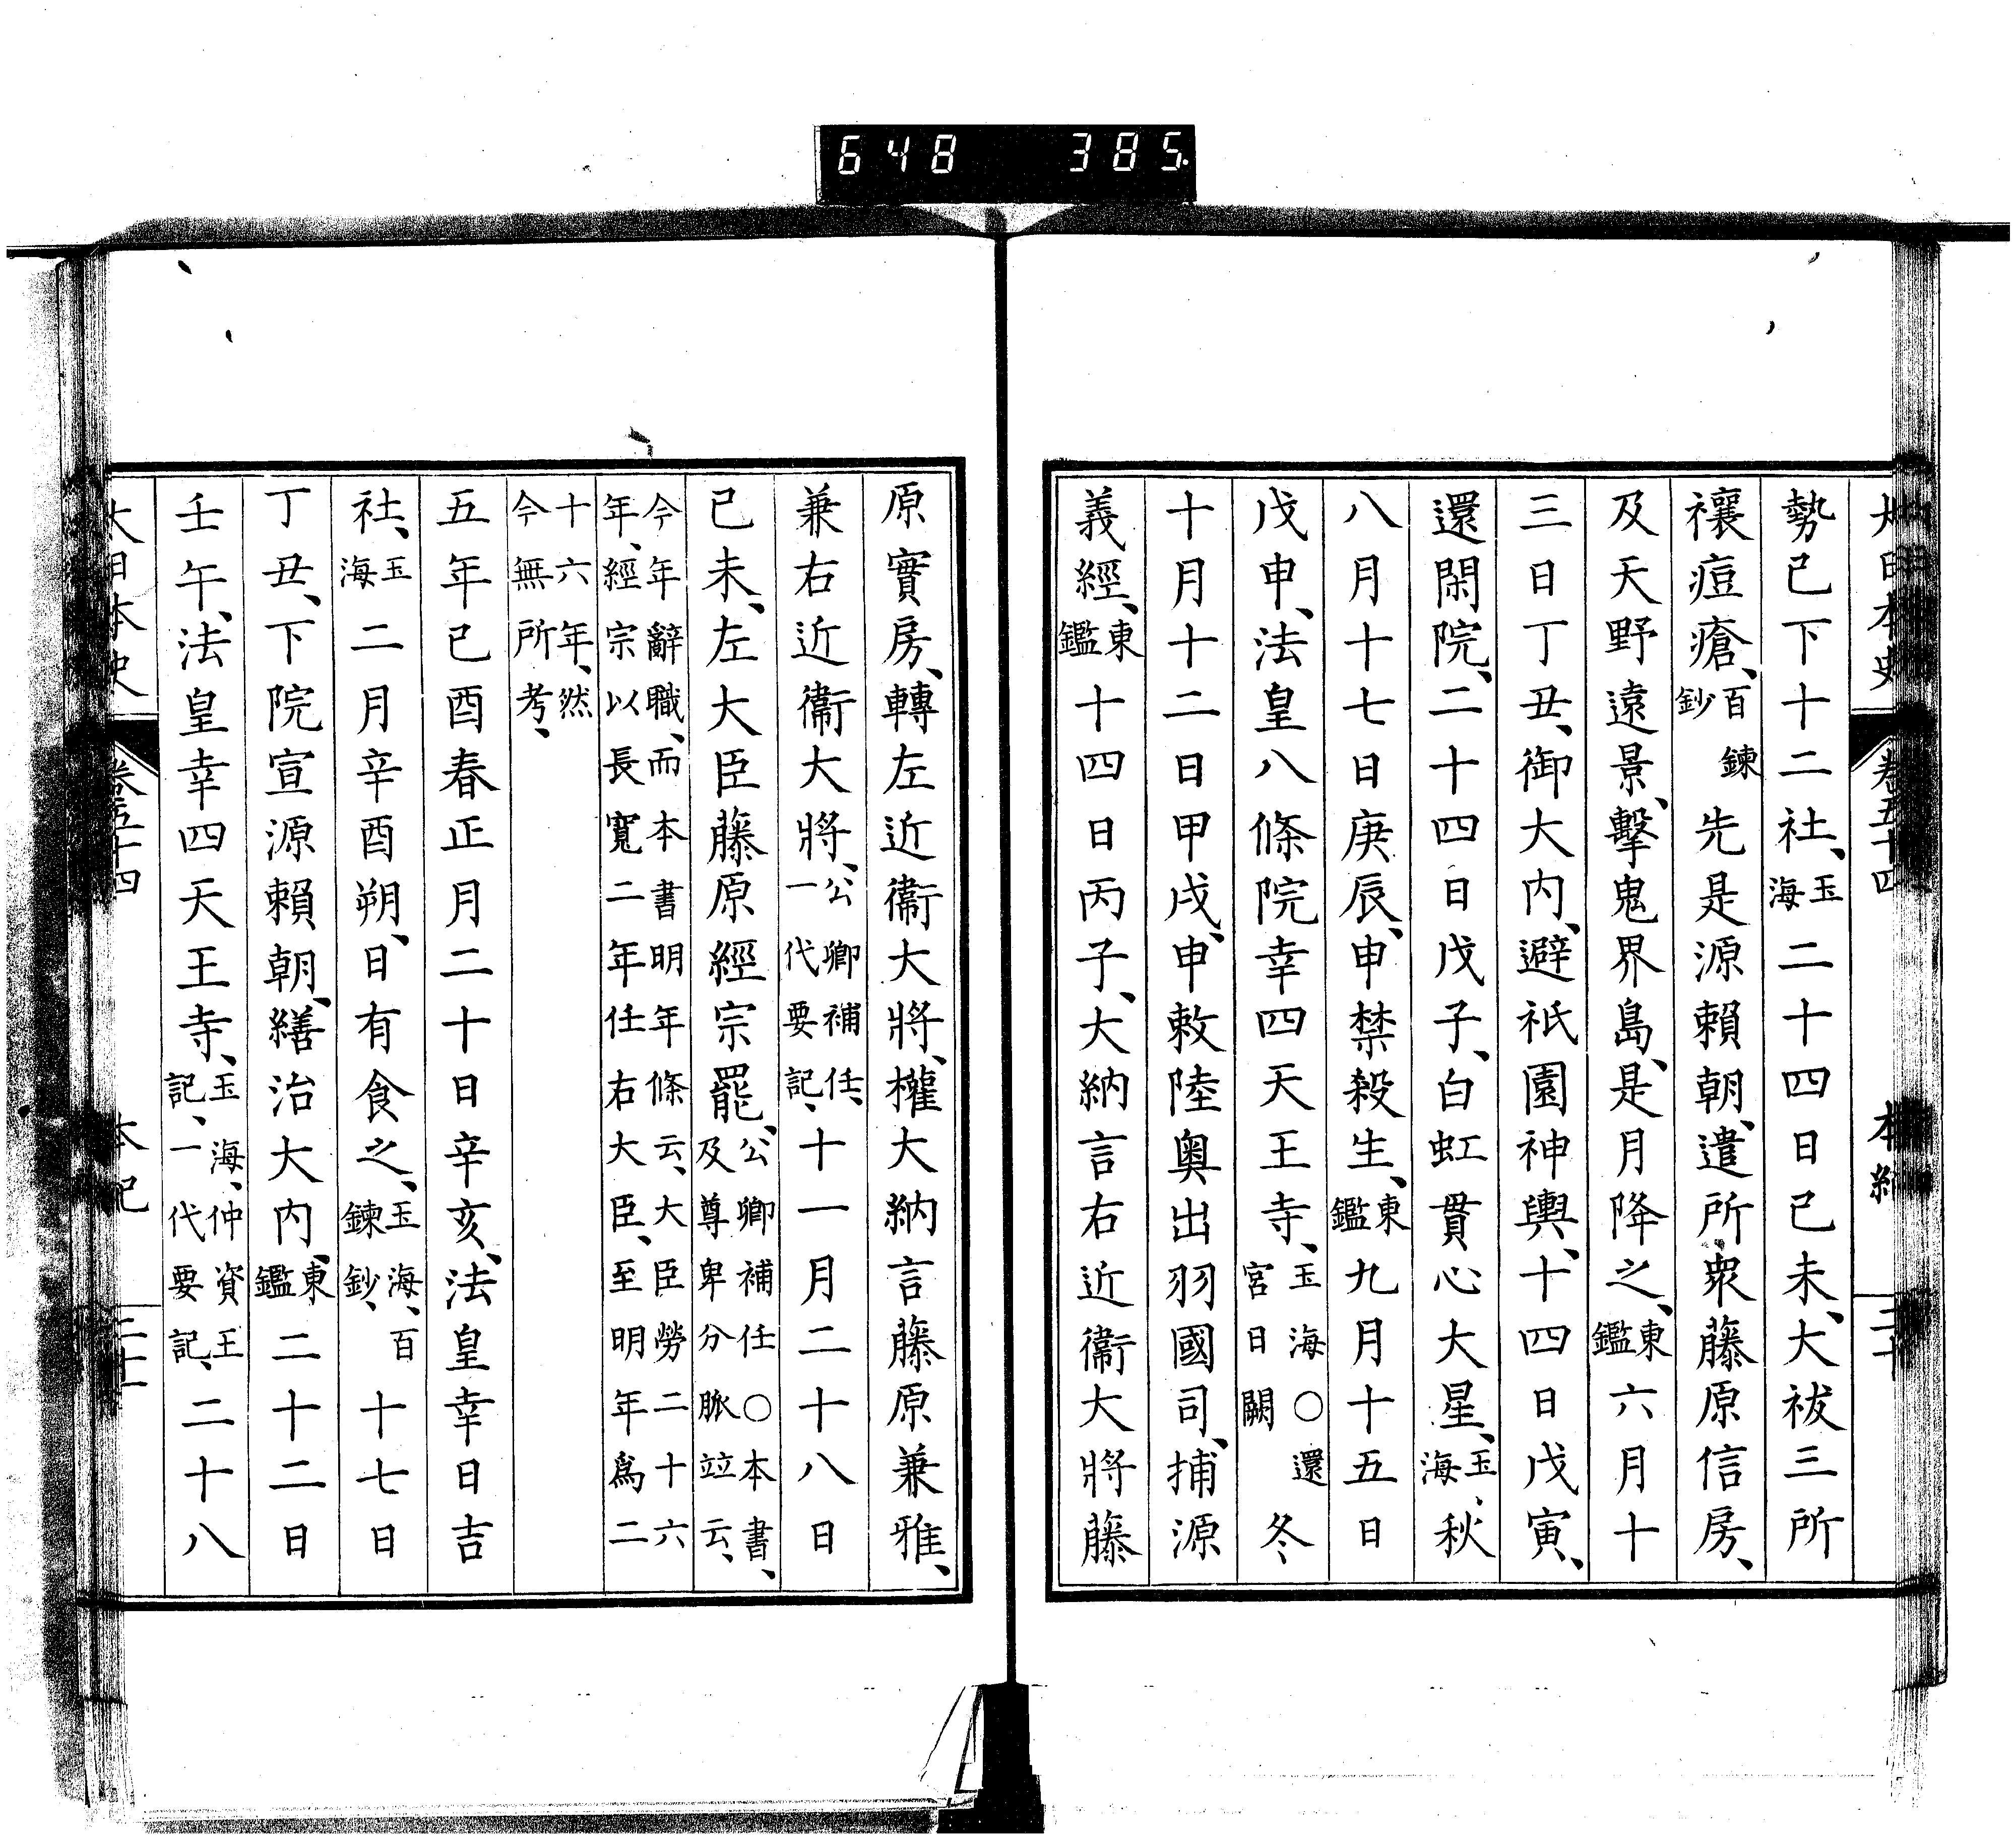 648 385
大日本史 卷五十四 本紀
勢已下十二社、玉海二十四日己未、大祓三所
禳痘瘡、百鍊鈔先是源賴朝、遣所衆藤原信房、
及天野遠景、擊鬼界島、是月降之、東鑑六月十
三日丁丑、御大內、避祇園神輿、十四日戊寅、
還閑院、二十四日戊子、白虹貫心大星、玉海、秋
八月十七日庚辰、申禁殺生、東鑑九月十五日
戊申、法皇八條院幸四天王寺、玉海○還宮日闕冬
十月十二日甲戌、申敕陸奧出羽國司、捕源
義經、東鑑十四日丙子、大納言右近衞大將藤
原實房、轉左近衞大將、權大納言藤原兼雅、
兼右近衞大將、公卿補任、一代要記、十一月二十八日
己未、左大臣藤原經宗罷、公卿補任○本書、及尊卑分脈竝云、
今年辭職、而本書明年條云、大臣勞二十六年、經宗以長寬二年任右大臣、至明年爲二
十六年、然今無所考、
五年己酉春正月二十日辛亥、法皇幸日吉
社、玉海二月辛酉朔、日有食之、玉海、百鍊鈔、十七日
丁丑、下院宣源賴朝、繕治大內、東鑑二十二日
壬午、法皇幸四天王寺、玉海、仲資王記、一代要記、二十八
大日本史 卷五十四 本紀